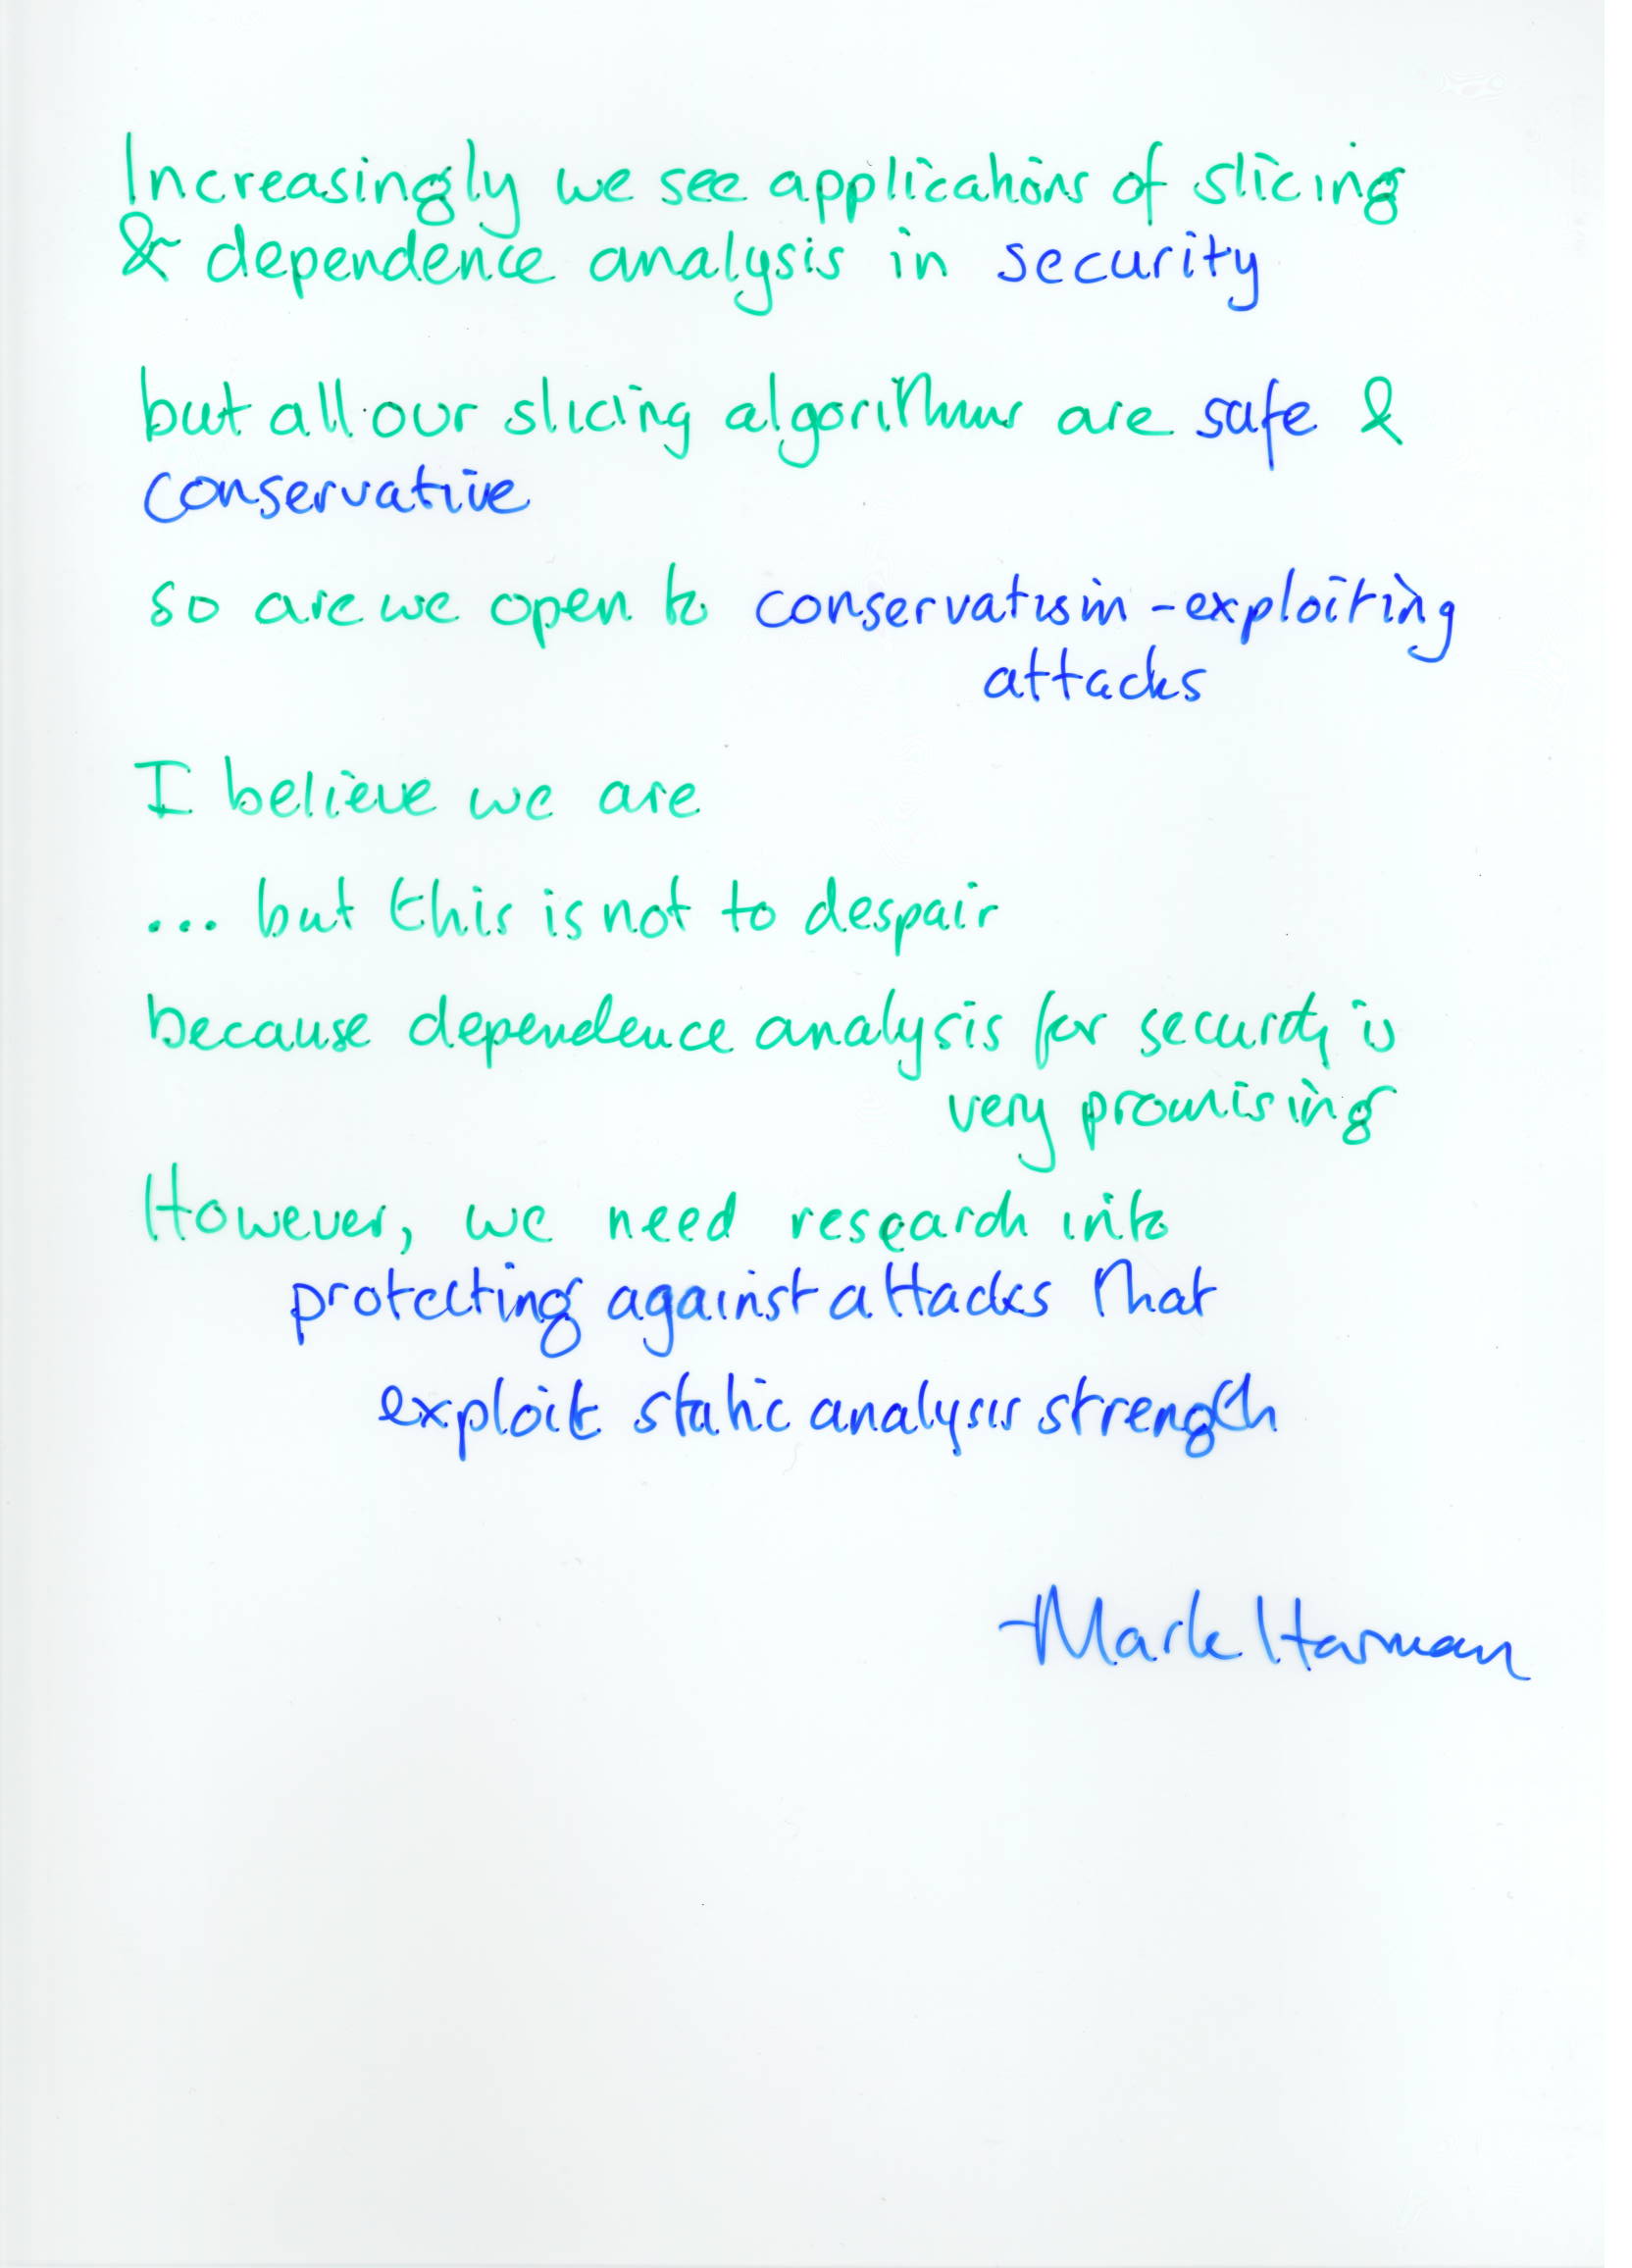 Increasingly we see applications of slicing
& dependence analysis in security
but all our slicing algorithms are safe &
conservative
so are we open to conservatism-exploiting
attacks
I believe we are
... but this is not to despair
because dependence analysis for security is
very promising
However, we need research into
protecting against attacks that
exploit static analysis strength
-Mark Harman